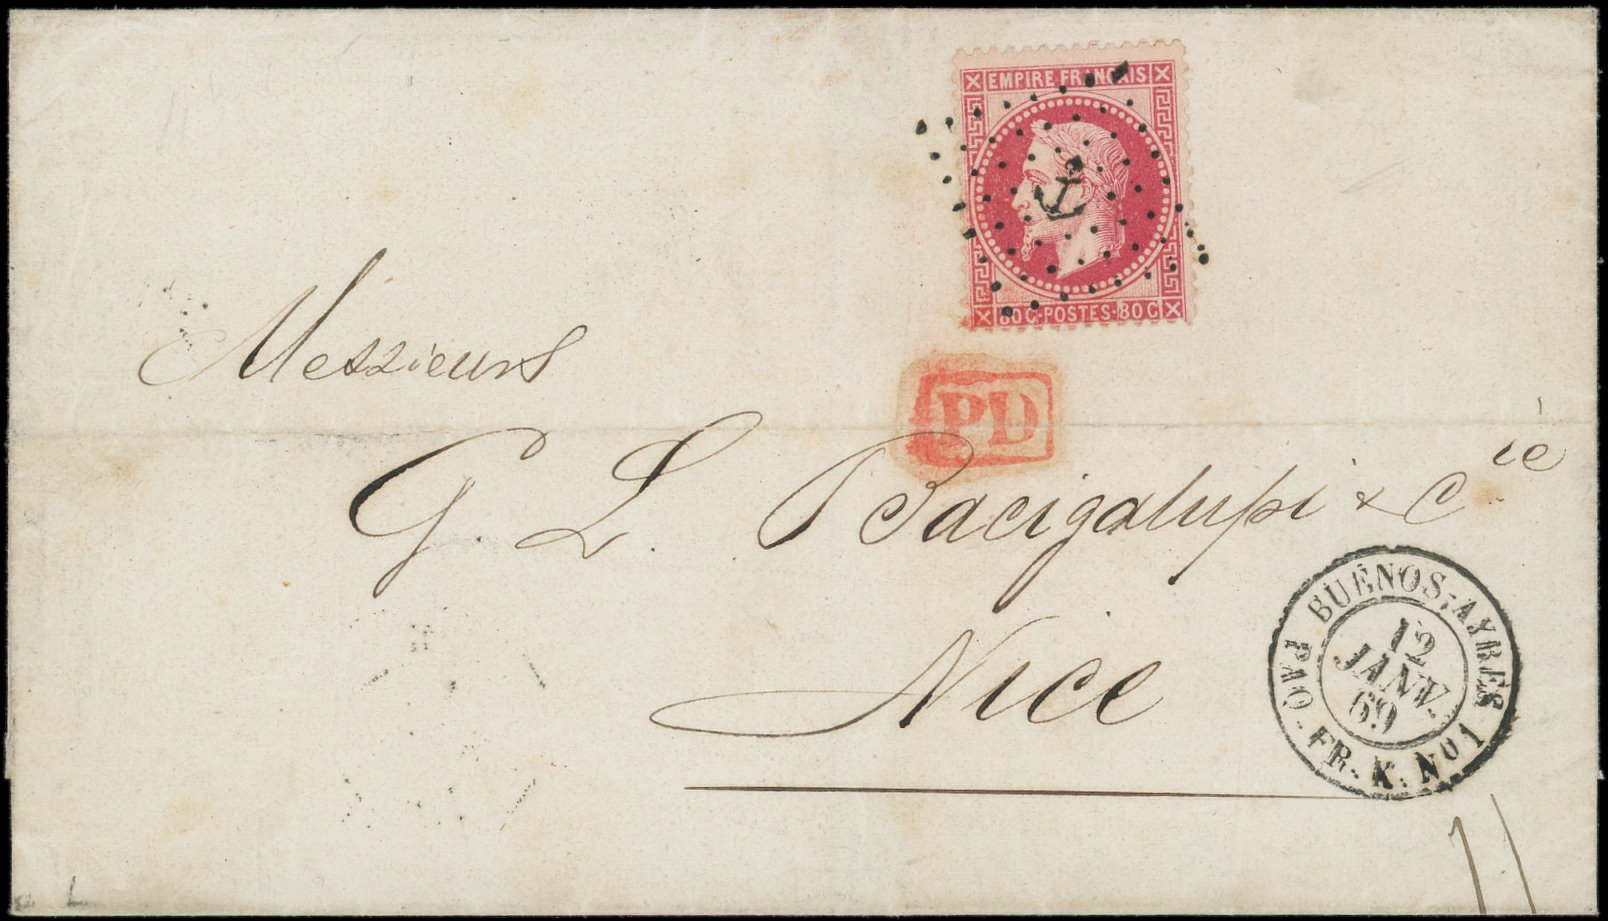 EMPIRE FRANÇAIS
80 C·POSTES·80 C
Messieurs
PD
G. L. Bacigalupi & Cie
Nice
BUENOS-AYRES
PAQ. FR. K. No 1
12
JANV.
69